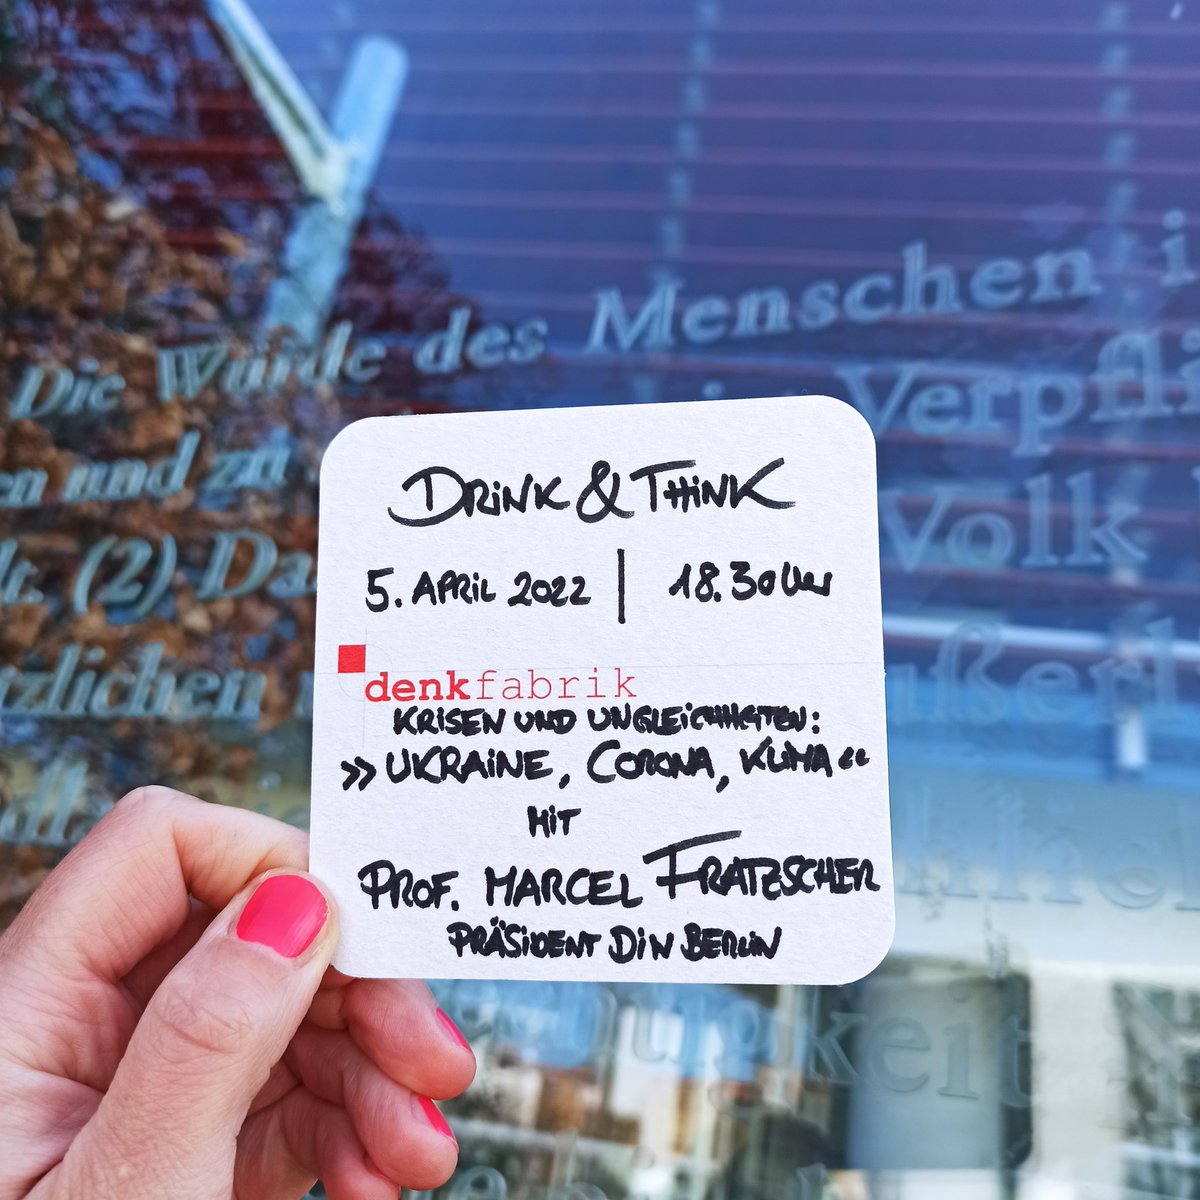 Die Würde des Menschen i
Verpfli
en und zu
Volk
t. (2) Da
äußerl
rzlichen
keit
DRiNK & THiNK
5. APRiL 2022 | 18.30 Uhr
denkfabrik
KRiSEN UND UNGLEiCHHEiTEN:
»UKRAiNE, CORONA, KLIMA«
MiT
PROF. MARCEL FRATZSCHER
PRÄSiDENT DiW BERLiN